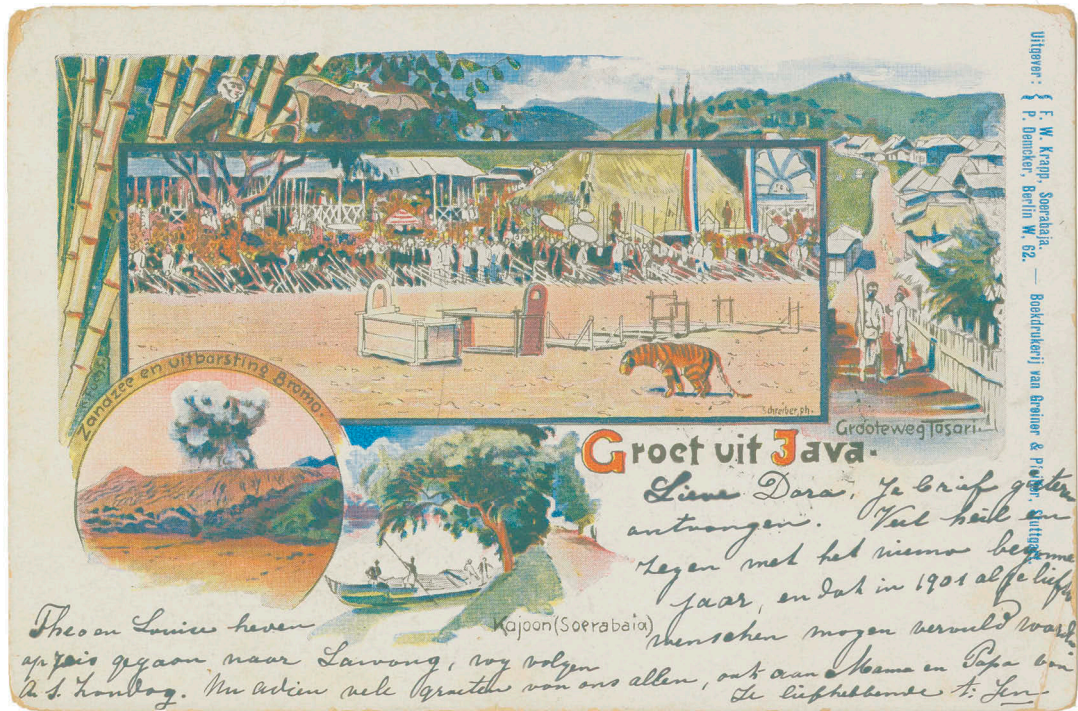 Uitgever: { F. W. Krapp, Soerabaja. — Boekdrukerij van Greiner & Pfeiffer, Stuttgart.
{ P. Demcker, Berlin W. 62.
Schreiber, ph.
Zandzee en uitbarsting Bromo.
Grooteweg Tosari
Groet uit Java.
Kajoon (Soerabaia)
Lieve Dora, Je brief gisteren
ontvangen. Veel heil en
zegen met het nieuwe begonne
jaar, en dat in 1901 al je liefste
wenschen mogen vervuld worden
Theo en Louise heven
op reis gegaan naar Lawang, wy volgen
A. S. Zondag. Nu adieu vele groeten van ons allen, ook aan Mama en Papa van
Je liefhebbende t. Jen